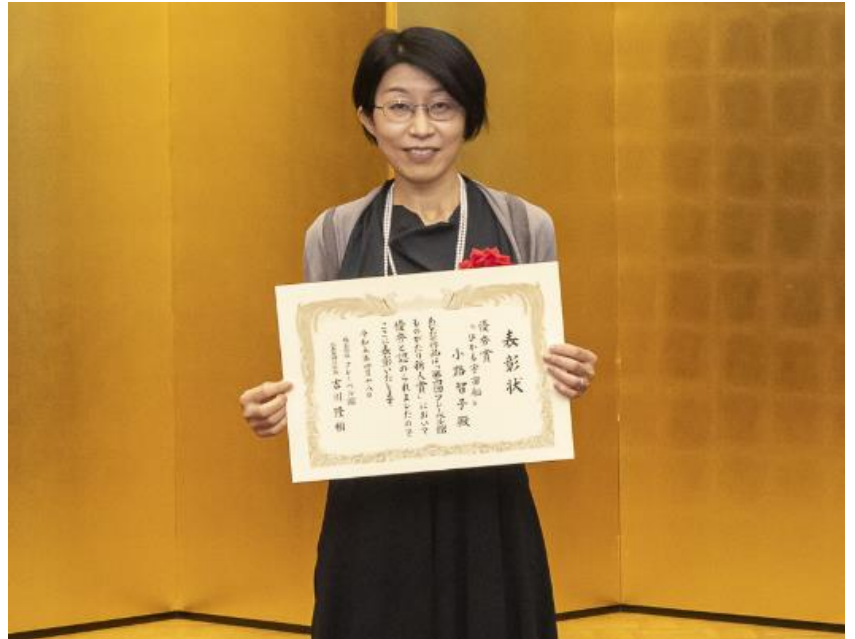 表彰状
優秀賞
小路智子殿
あなたの作品は「第四回フレーベル館
ものがたり新人賞」において
優秀と認められましたので
ここに表彰いたします
令和五年四月十八日
株式会社フレーベル館
吉川隆樹